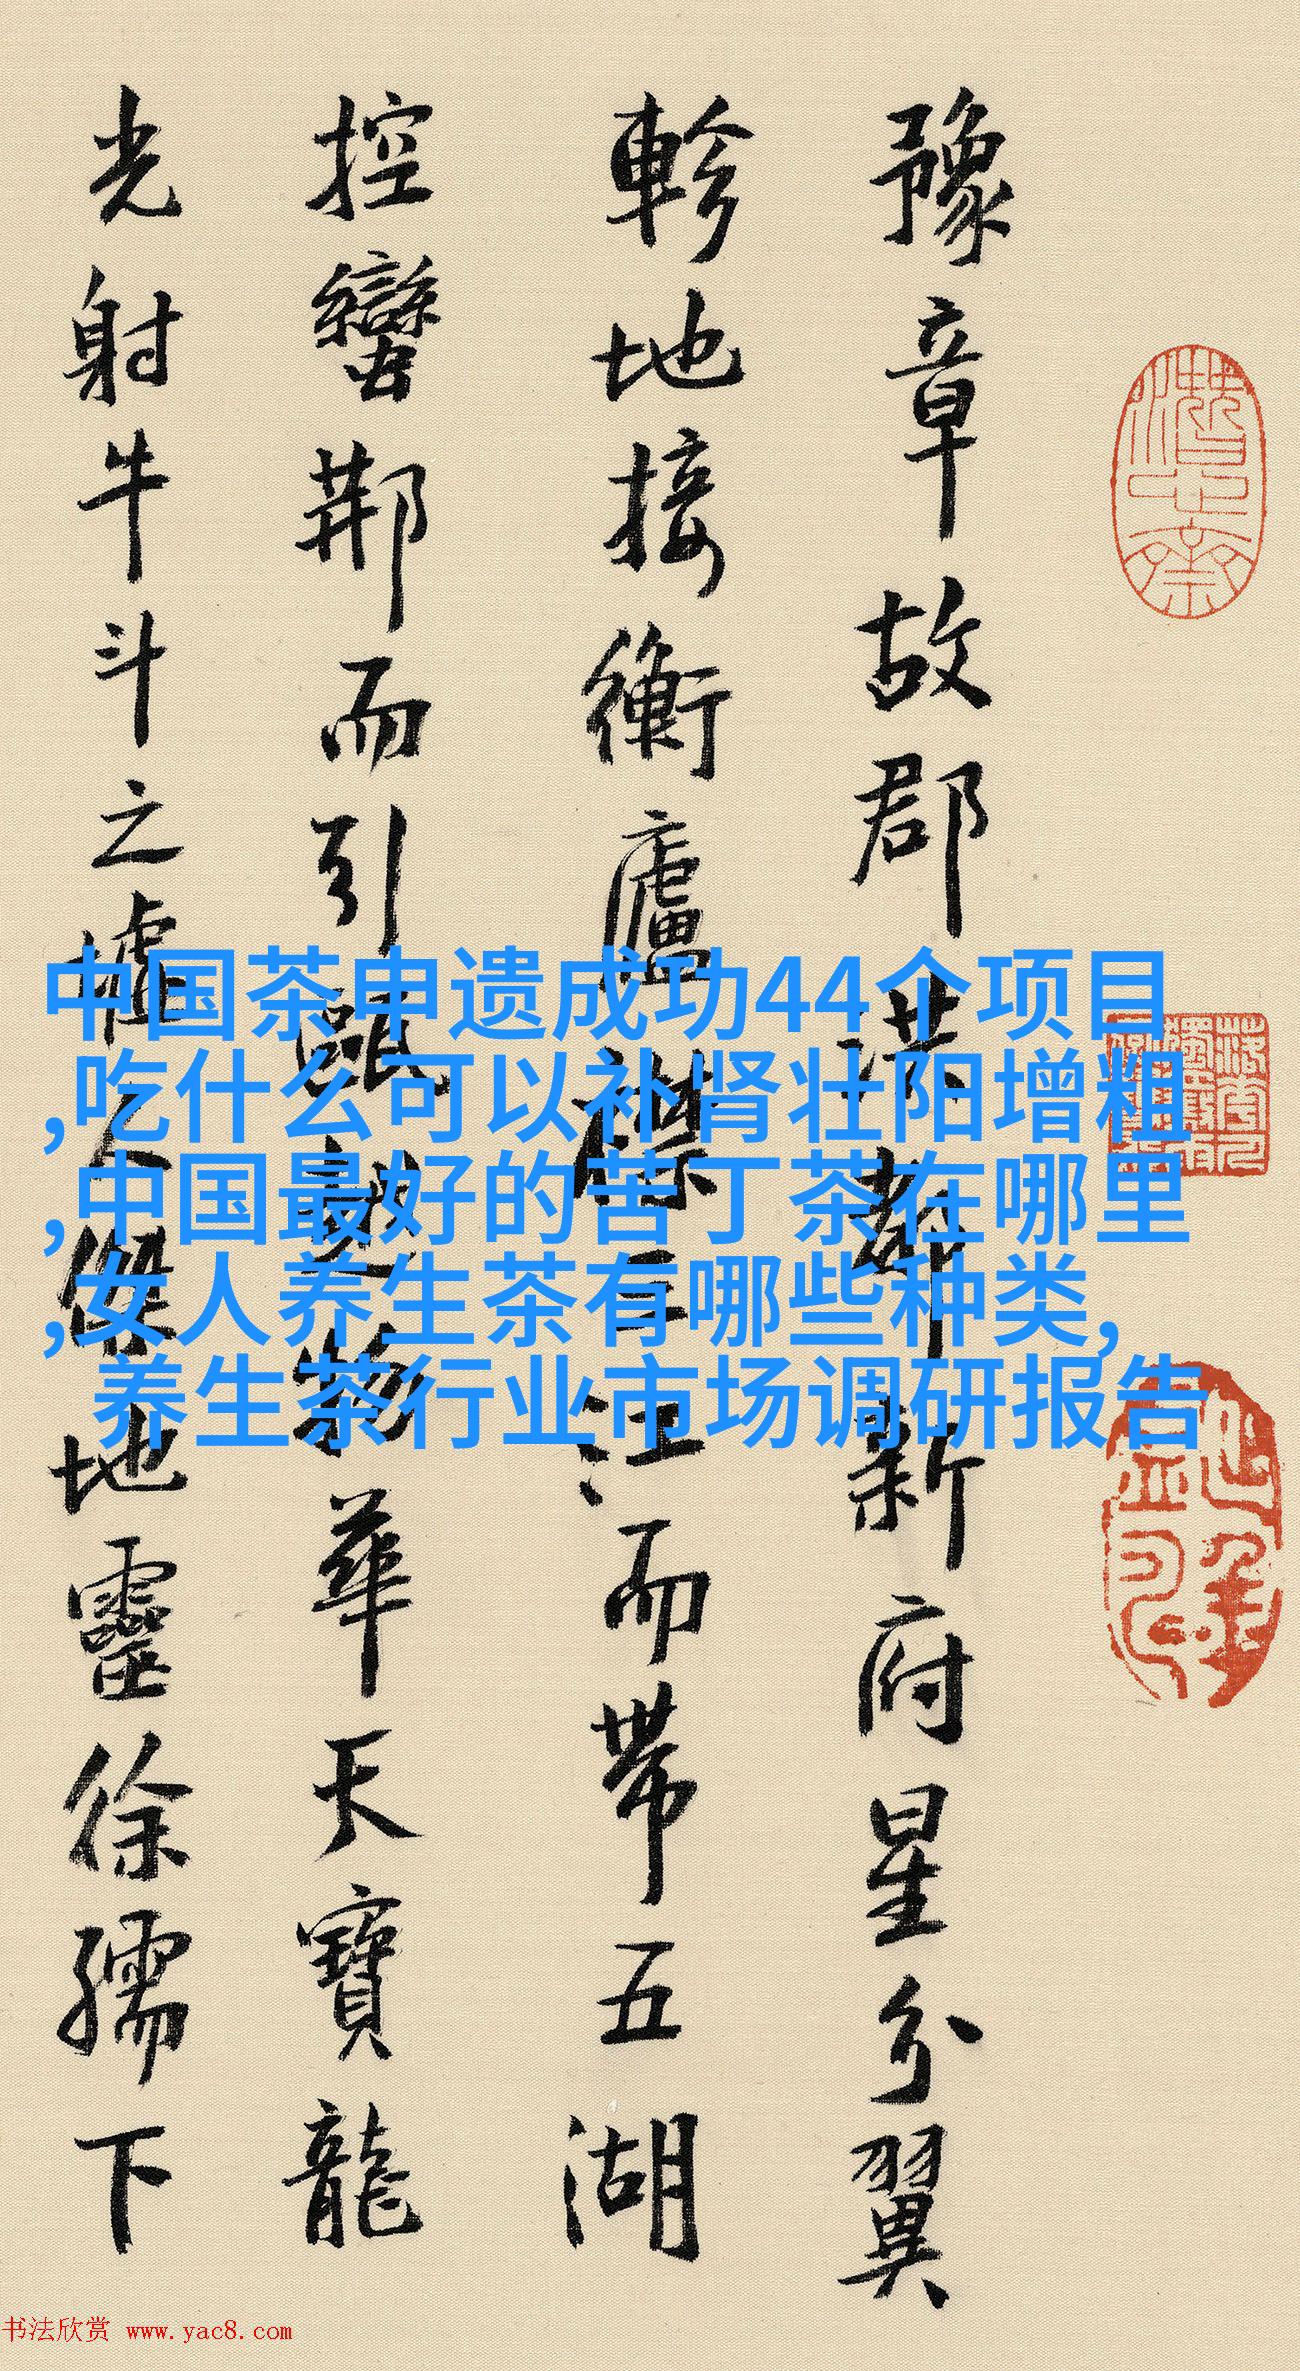 豫章故郡洪都新府星分翼
軫地接衡廬襟三江而帶五湖
控蠻荊而引甌越物華天寶龍
光射牛斗之墟人傑地靈徐孺下
中国茶申遗成功44个项目
,吃什么可以补肾壮阳增粗
,中国最好的苦丁茶在哪里
,女人养生茶有哪些种类,
养生茶行业市场调研报告
书法欣赏 www.yac8.com